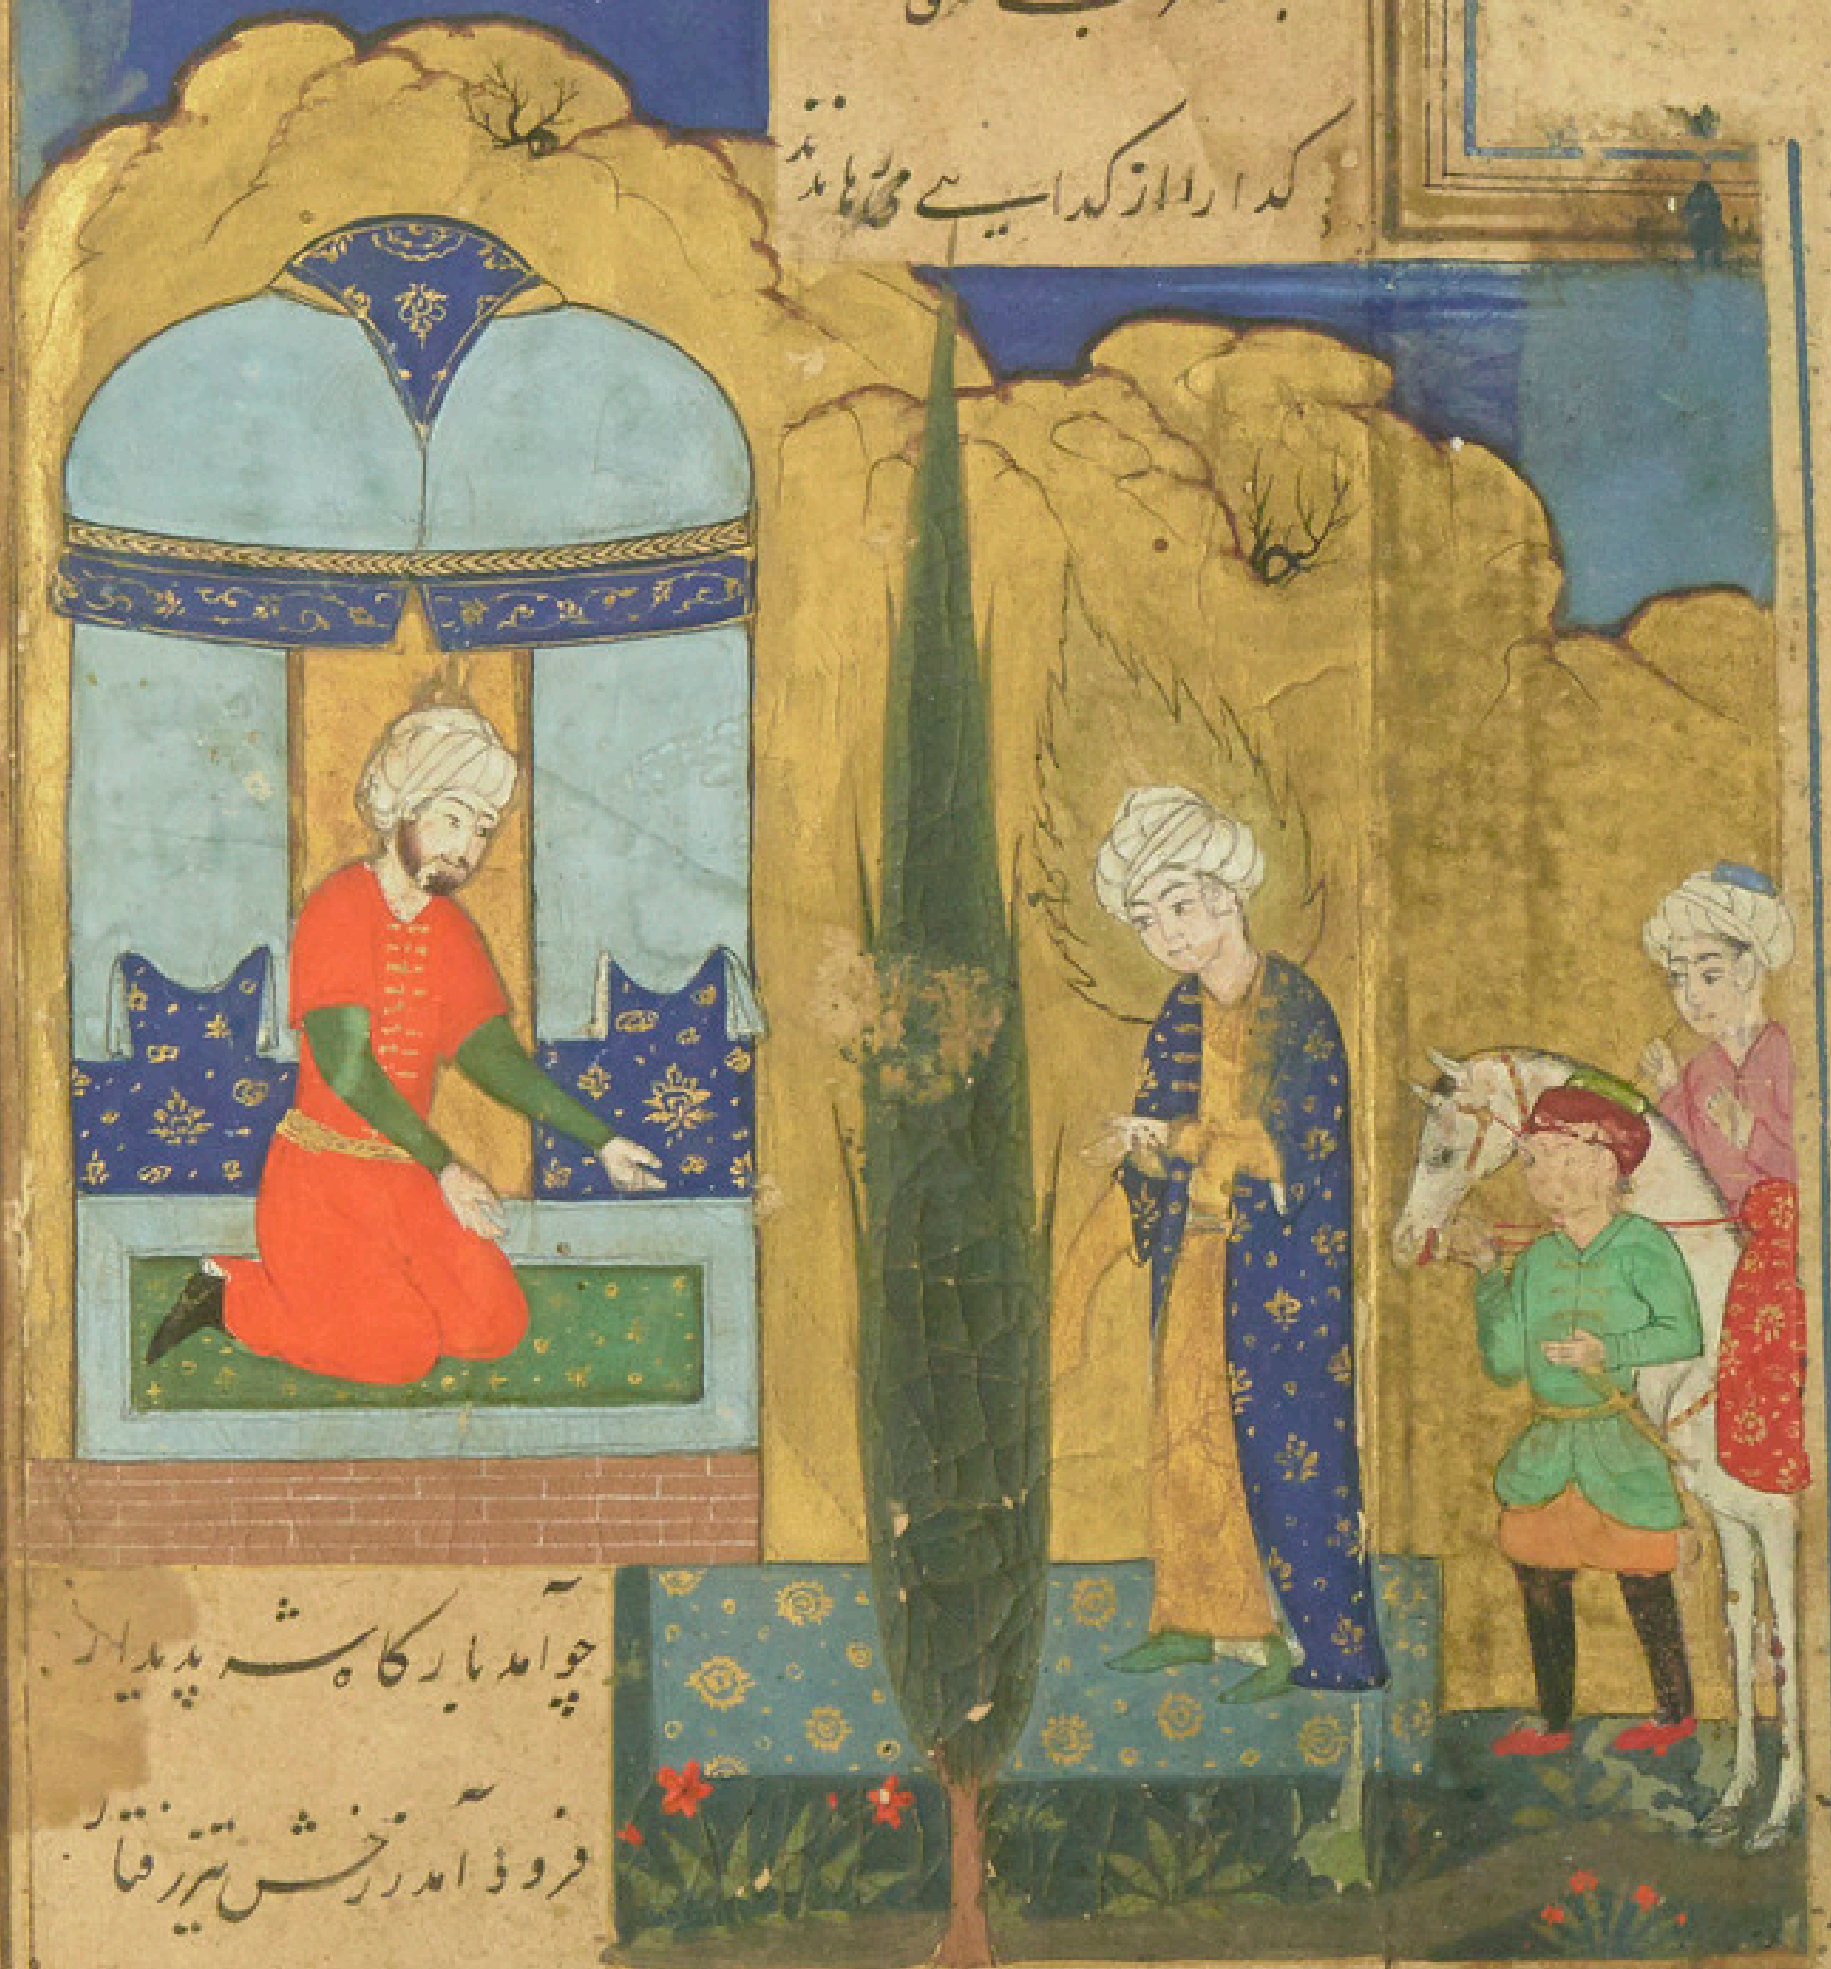 کدا را از کدایے می رهانند
چو آمد بارکاهش پدیدار
فرود آمد ز رخش تیز رفتار